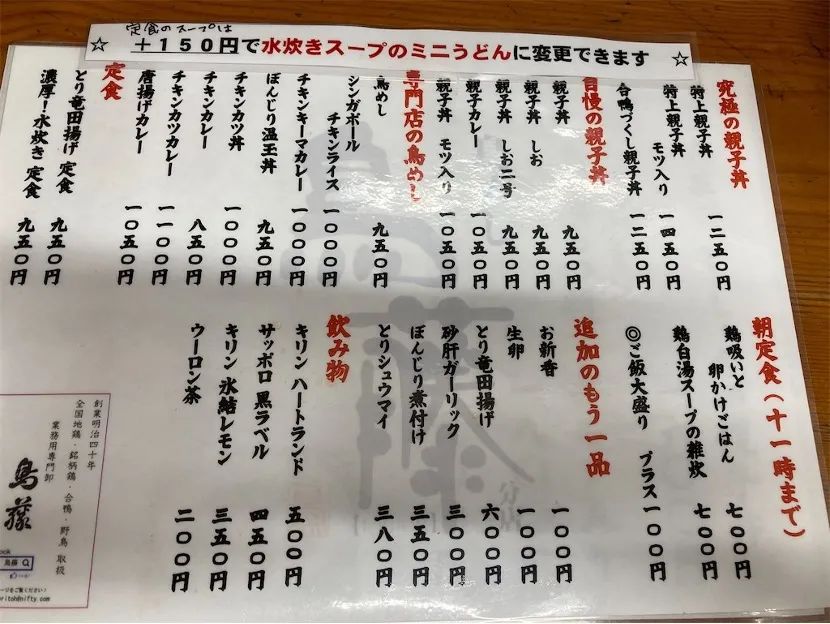 定食のスープは
☆ +150円で水炊きスープのミニうどんに変更できます ☆
究極の親子丼
特上親子丼 一二五〇円
特上親子丼 モツ入り 一四五〇円
合鴨づくし親子丼 一二五〇円
自慢の親子丼
親子丼 九五〇円
親子丼 しお 九五〇円
親子丼 しお二号 九五〇円
親子カレー 一〇五〇円
親子丼 モツ入り 一〇五〇円
専門店の鳥めし
鳥めし 九五〇円
シンガポール
チキンライス 一〇〇〇円
チキンキーマカレー 一〇〇〇円
ぼんじり温玉丼 九五〇円
チキンカツ丼 一〇〇〇円
チキンカレー 八五〇円
チキンカツカレー 一一〇〇円
唐揚げカレー 一〇五〇円
定食
とり竜田揚げ 定食 九五〇円
濃厚!水炊き 定食 九五〇円
朝定食(十一時まで)
鶏吸いと
卵かけごはん 七〇〇円
鶏白湯スープの雑炊 七〇〇円
◎ご飯大盛り プラス一〇〇円
追加のもう一品
お新香 一〇〇円
生卵 一〇〇円
とり竜田揚げ 六〇〇円
砂肝ガーリック 三〇〇円
ぼんじり煮付け 三五〇円
とりシュウマイ 三八〇円
飲み物
キリン ハートランド 五〇〇円
サッポロ 黒ラベル 四五〇円
キリン 氷結レモン 三五〇円
ウーロン茶 二〇〇円
創業明治四十年
全国地鶏・銘柄鶏・合鴨・野鳥 取扱
業務用専門卸
鳥藤
鳥藤
分店